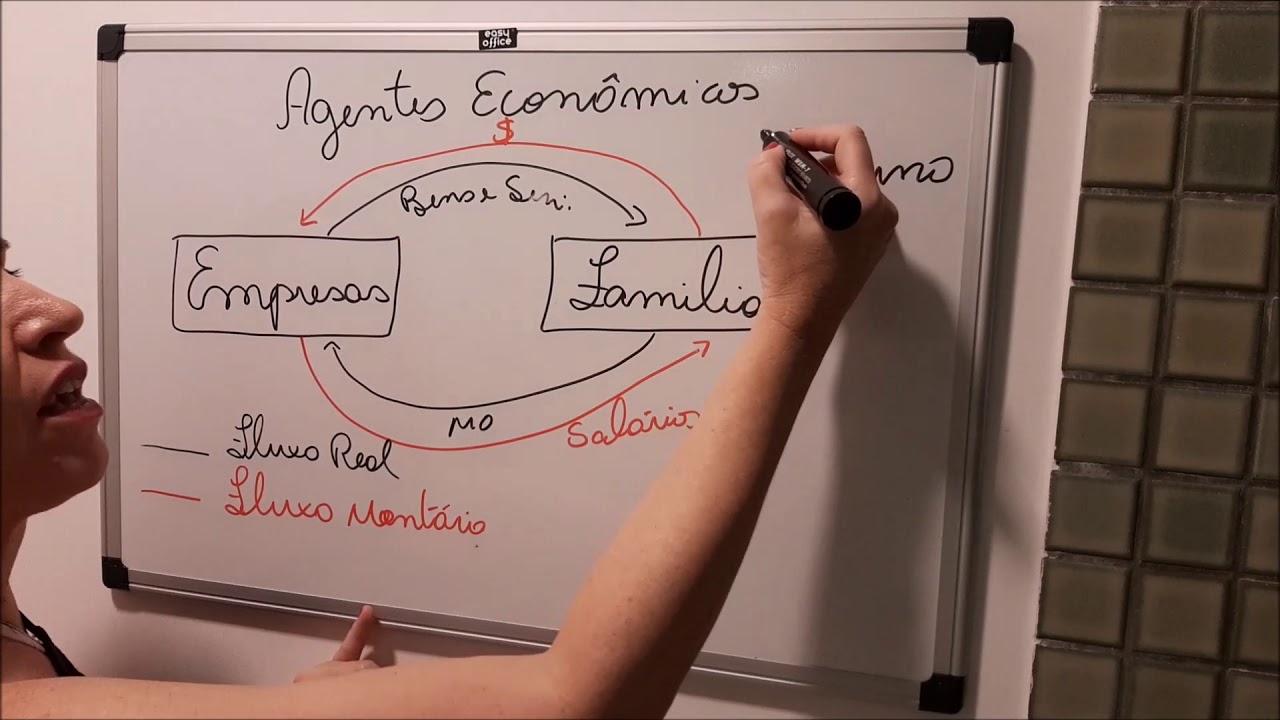 easy
office
Agentes Econômicos
$
Bens e Serv.
Empresas
Familia
MO
Salários
Fluxo Real
Fluxo Montário